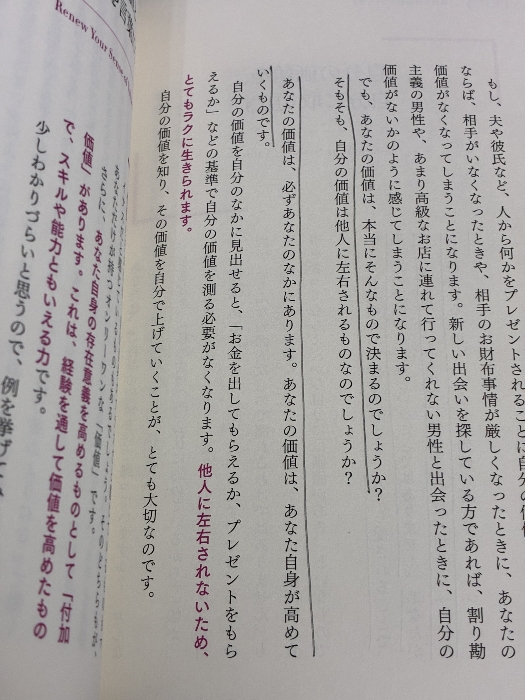 もし、夫や彼氏など、人から何かをプレゼントされることに自分の価値
ならば、相手がいなくなったときや、相手のお財布事情が厳しくなったときに、あなたの
価値がなくなってしまうことになります。新しい出会いを探している方であれば、割り勘
主義の男性や、あまり高級なお店に連れて行ってくれない男性と出会ったときに、自分の
価値がないかのように感じてしまうことになります。
でも、あなたの価値は、本当にそんなもので決まるのでしょうか？
そもそも、自分の価値は他人に左右されるものなのでしょうか？
あなたの価値は、必ずあなたのなかにあります。あなたの価値は、あなた自身が高めて
いくものです。
自分の価値を自分のなかに見出せると、「お金を出してもらえるか、プレゼントをもら
えるか」などの基準で自分の価値を測る必要がなくなります。他人に左右されないため、
とてもラクに生きられます。
自分の価値を知り、その価値を自分で上げていくことが、とても大切なのです。
Renew Your Sense
あなただけが持つオンリーワンな「価値」です。
さらに、あなた自身の存在意義を高めるものとして「付加
価値」があります。これは、経験を通して価値を高めたもの
で、スキルや能力ともいえる力です。
少しわかりづらいと思うので、例を挙げて